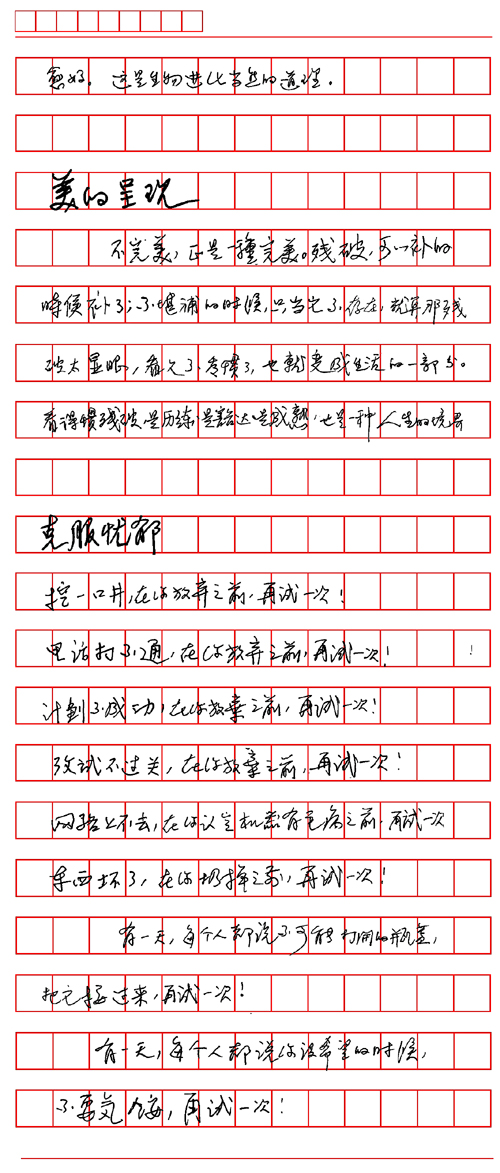 愈好。这是生物进化当然的道理。
美的呈现
不完美，正是一種完美。残破，可以补的
時候补了；不堪補的时候，只当它不存在，就算那残
破太显眼，看久了、看惯了，也就变成生活的一部分。
看得惯残破是历练是豁达是成熟，也是一种人生的境界
克服忧郁
挖一口井，在你放弃之前，再试一次！
电话打不通，在你放弃之前，再试一次！
计划不成功，在你放棄之前，再试一次！
考试不过关，在你放棄之前，再试一次！
网路上不去，在你认定机器有毛病之前，再试一次
东西坏了，在你扔掉之前，再试一次！
有一天，每个人都说不可能打開的瓶盖，
把它接过来，再试一次！
有一天，每个人都说你没希望的时候，
不要气馁，再试一次！